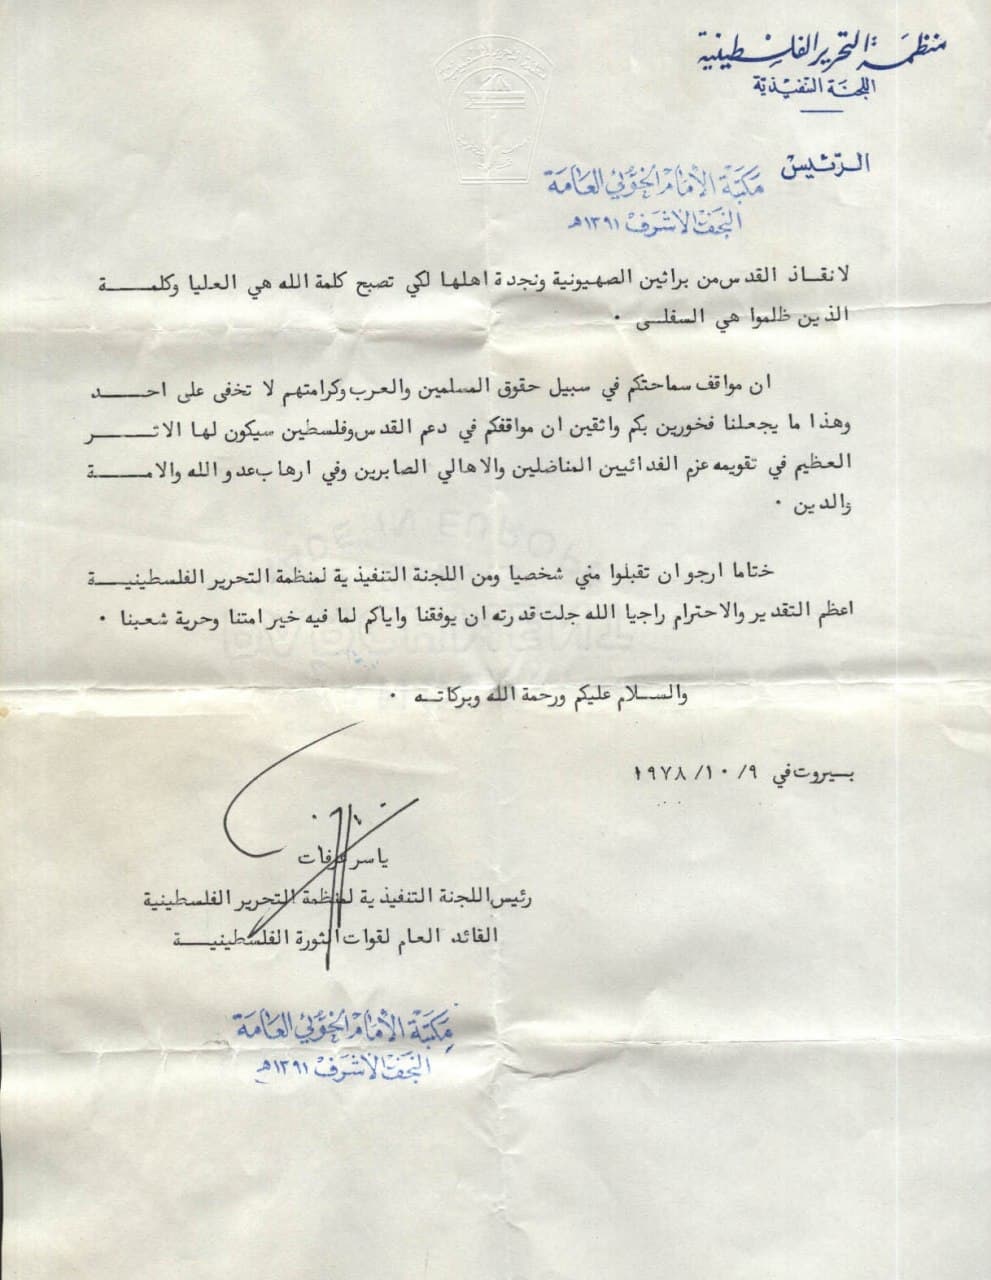 منظمة التحرير الفلسطينية
اللجنة التنفيذية
الرئيس
مكتبة الإمام الخوئي العامة
النجف الاشرف ١٣٩١هـ
لانقاذ القدس من براثين الصهيونية ونجدة اهلها لكي تصبح كلمة الله هي العليا وكلمة
الذين ظلموا هي السفلى ٠
ان مواقف سماحتكم في سبيل حقوق المسلمين والعرب وكرامتهم لا تخفى على احد
وهذا ما يجعلنا فخورين بكم واثقين ان مواقفكم في دعم القدس وفلسطين سيكون لها الاثر
العظيم في تقويمه عزم الفدائيين المناضلين والاهالي الصابرين وفي ارهاب عدو الله والامة
والدين ٠
ختاما ارجو ان تقبلوا مني شخصيا ومن اللجنة التنفيذية لمنظمة التحرير الفلسطينية
اعظم التقدير والاحترام راجيا الله جلت قدرته ان يوفقنا واياكم لما فيه خير امتنا وحرية شعبنا ٠
والسلام عليكم ورحمة الله وبركاته ٠
بيروت في ٩/ ١٠/ ١٩٧٨
ياسر عرفات
رئيس اللجنة التنفيذية لمنظمة التحرير الفلسطينية
القائد العام لقوات الثورة الفلسطينية
مكتبة الإمام الخوئي العامة
النجف الاشرف ١٣٩١هـ